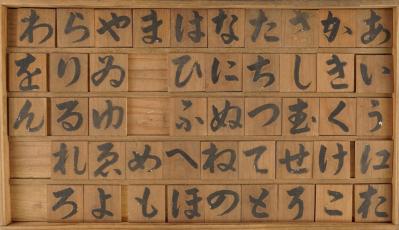 あいう江お
かきくけこ
さしすせそ
たちつてと
なにぬねの
はひふへほ
まめも
やゐゆゑよ
らりるれろ
わをん